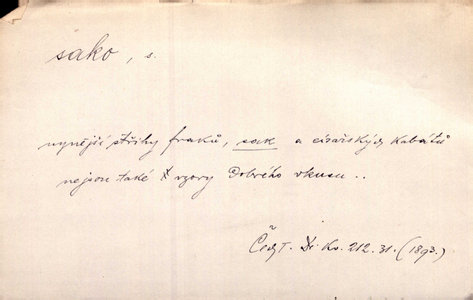 sako, s.
nynější střihy fraků, sak a císařských kabátů
nejsou také vzory dobrého vkusu ..
Čech. T. Kv. 212. 31. (1893.)